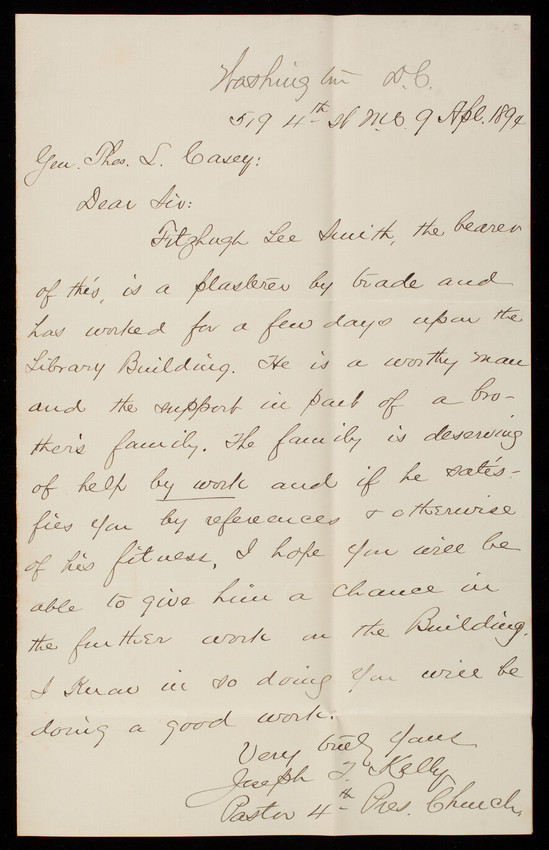 Washington D.C.
519 4th St N.E. 9 Apl. 1894
Gen. Thos. L. Casey:
Dear Sir:
Fitzhugh Lee Smith, the bearer
of this, is a plasterer by trade and
has worked for a few days upon the
Library Building. He is a worthy man
and the support in part of a bro-
ther's family. The family is deserving
of help by work and if he satis-
fies you by references & otherwise
of his fitness, I hope you will be
able to give him a chance in
the further work on the Building.
I know in so doing you will be
doing a good work.
Very truly yours
Joseph T. Kelly
Pastor 4th Pres. Church.